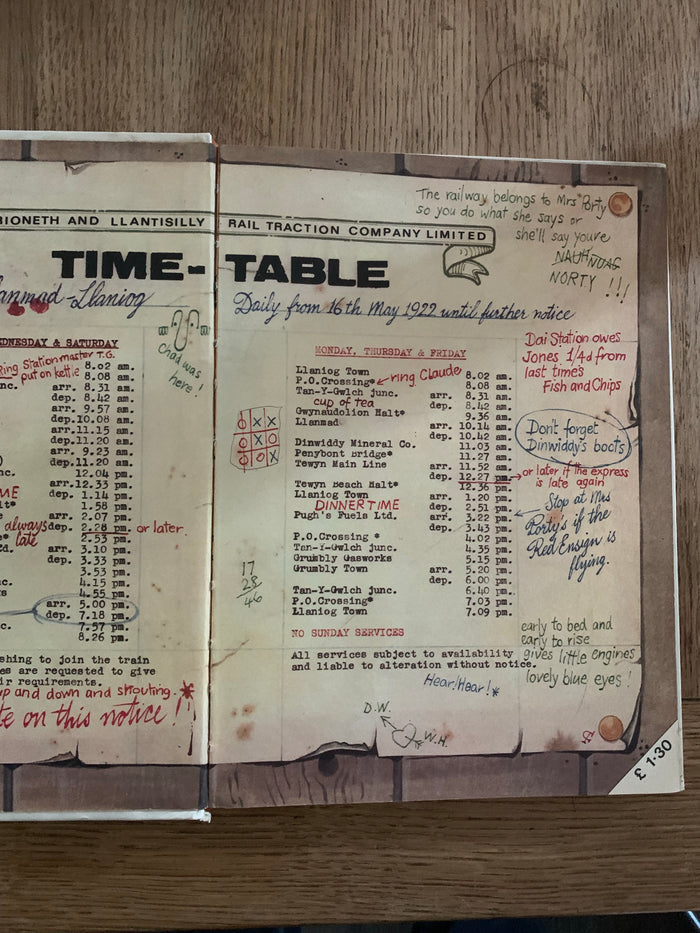 The railway belongs to Mrs Porty
so you do what she says or
she'll say youre
NAUH NUAG
NORTY !!!
BIONETH AND LLANTISILLY
RAIL TRACTION COMPANY LIMITED
TIME-TABLE
anmad-Llaniog
Daily from 16th May 1922 until further notice
Chad was
here!
DNESDAY & SATURDAY
Ring Stationmaster T.G. 8.02 am.
put on kettle 8.08 am.
nc. arr. 8.31 am.
dep. 8.42 am.
arr. 9.57 am.
dep.10.08 am.
arr.11.15 am.
dep.11.20 am.
arr. 9.23 am.
dep.11.20 am.
12.04 pm.
nc. arr.12.33 pm.
ME dep. 1.14 pm.
1.58 pm.
arr. 2.07 pm.
always dep. 2.28 pm. or later.
late 2.53 pm.
arr. 3.10 pm.
dep. 3.33 pm.
3.53 pm.
nc. 4.15 pm.
4.55 pm.
arr. 5.00 pm.
dep. 7.18 pm.
nc. 7.57 pm.
8.26 pm.
shing to join the train
es are requested to give
ir requirements.
up and down and shouting.*
te on this notice!
O X X
X X O
O O X
17
28
46
MONDAY, THURSDAY & FRIDAY
Llaniog Town 8.02 am.
P.O.Crossing* ring Claude 8.08 am.
Tan-Y-Gwlch junc. arr. 8.31 am.
cup of tea dep. 8.42 am.
Gwynaudolion Halt* 9.36 am.
Llanmad arr. 10.14 am.
dep. 10.42 am.
Dinwiddy Mineral Co. 11.03 am.
Penybont Bridge* 11.27 am.
Tewyn Main Line arr. 11.52 am.
dep. 12.27 pm.
Tewyn Beach Halt* 12.36 pm.
Llaniog Town arr. 1.20 pm.
DINNERTIME dep. 2.51 pm.
Pugh's Fuels Ltd. arr. 3.22 pm.
dep. 3.43 pm.
P.O.Crossing * 4.02 pm.
Tan-Y-Gwlch junc. 4.35 pm.
Grumbly Gasworks 5.15 pm.
Grumbly Town arr. 5.20 pm.
dep. 6.00 pm.
Tan-Y-Gwlch junc. 6.40 pm.
P.O.Crossing* 7.03 pm.
Llaniog Town 7.09 pm.
NO SUNDAY SERVICES
All services subject to availability
and liable to alteration without notice.
Hear! Hear!*
D.W.
W.H.
Dai Station owes
Jones 1/4d from
last time's
Fish and Chips
Don't forget
Dinwiddy's boots
or later if the express
is late again
Stop at Mrs
Porty's if the
Red Ensign is
flying.
early to bed and
early to rise
gives little engines
lovely blue eyes!
£1·30